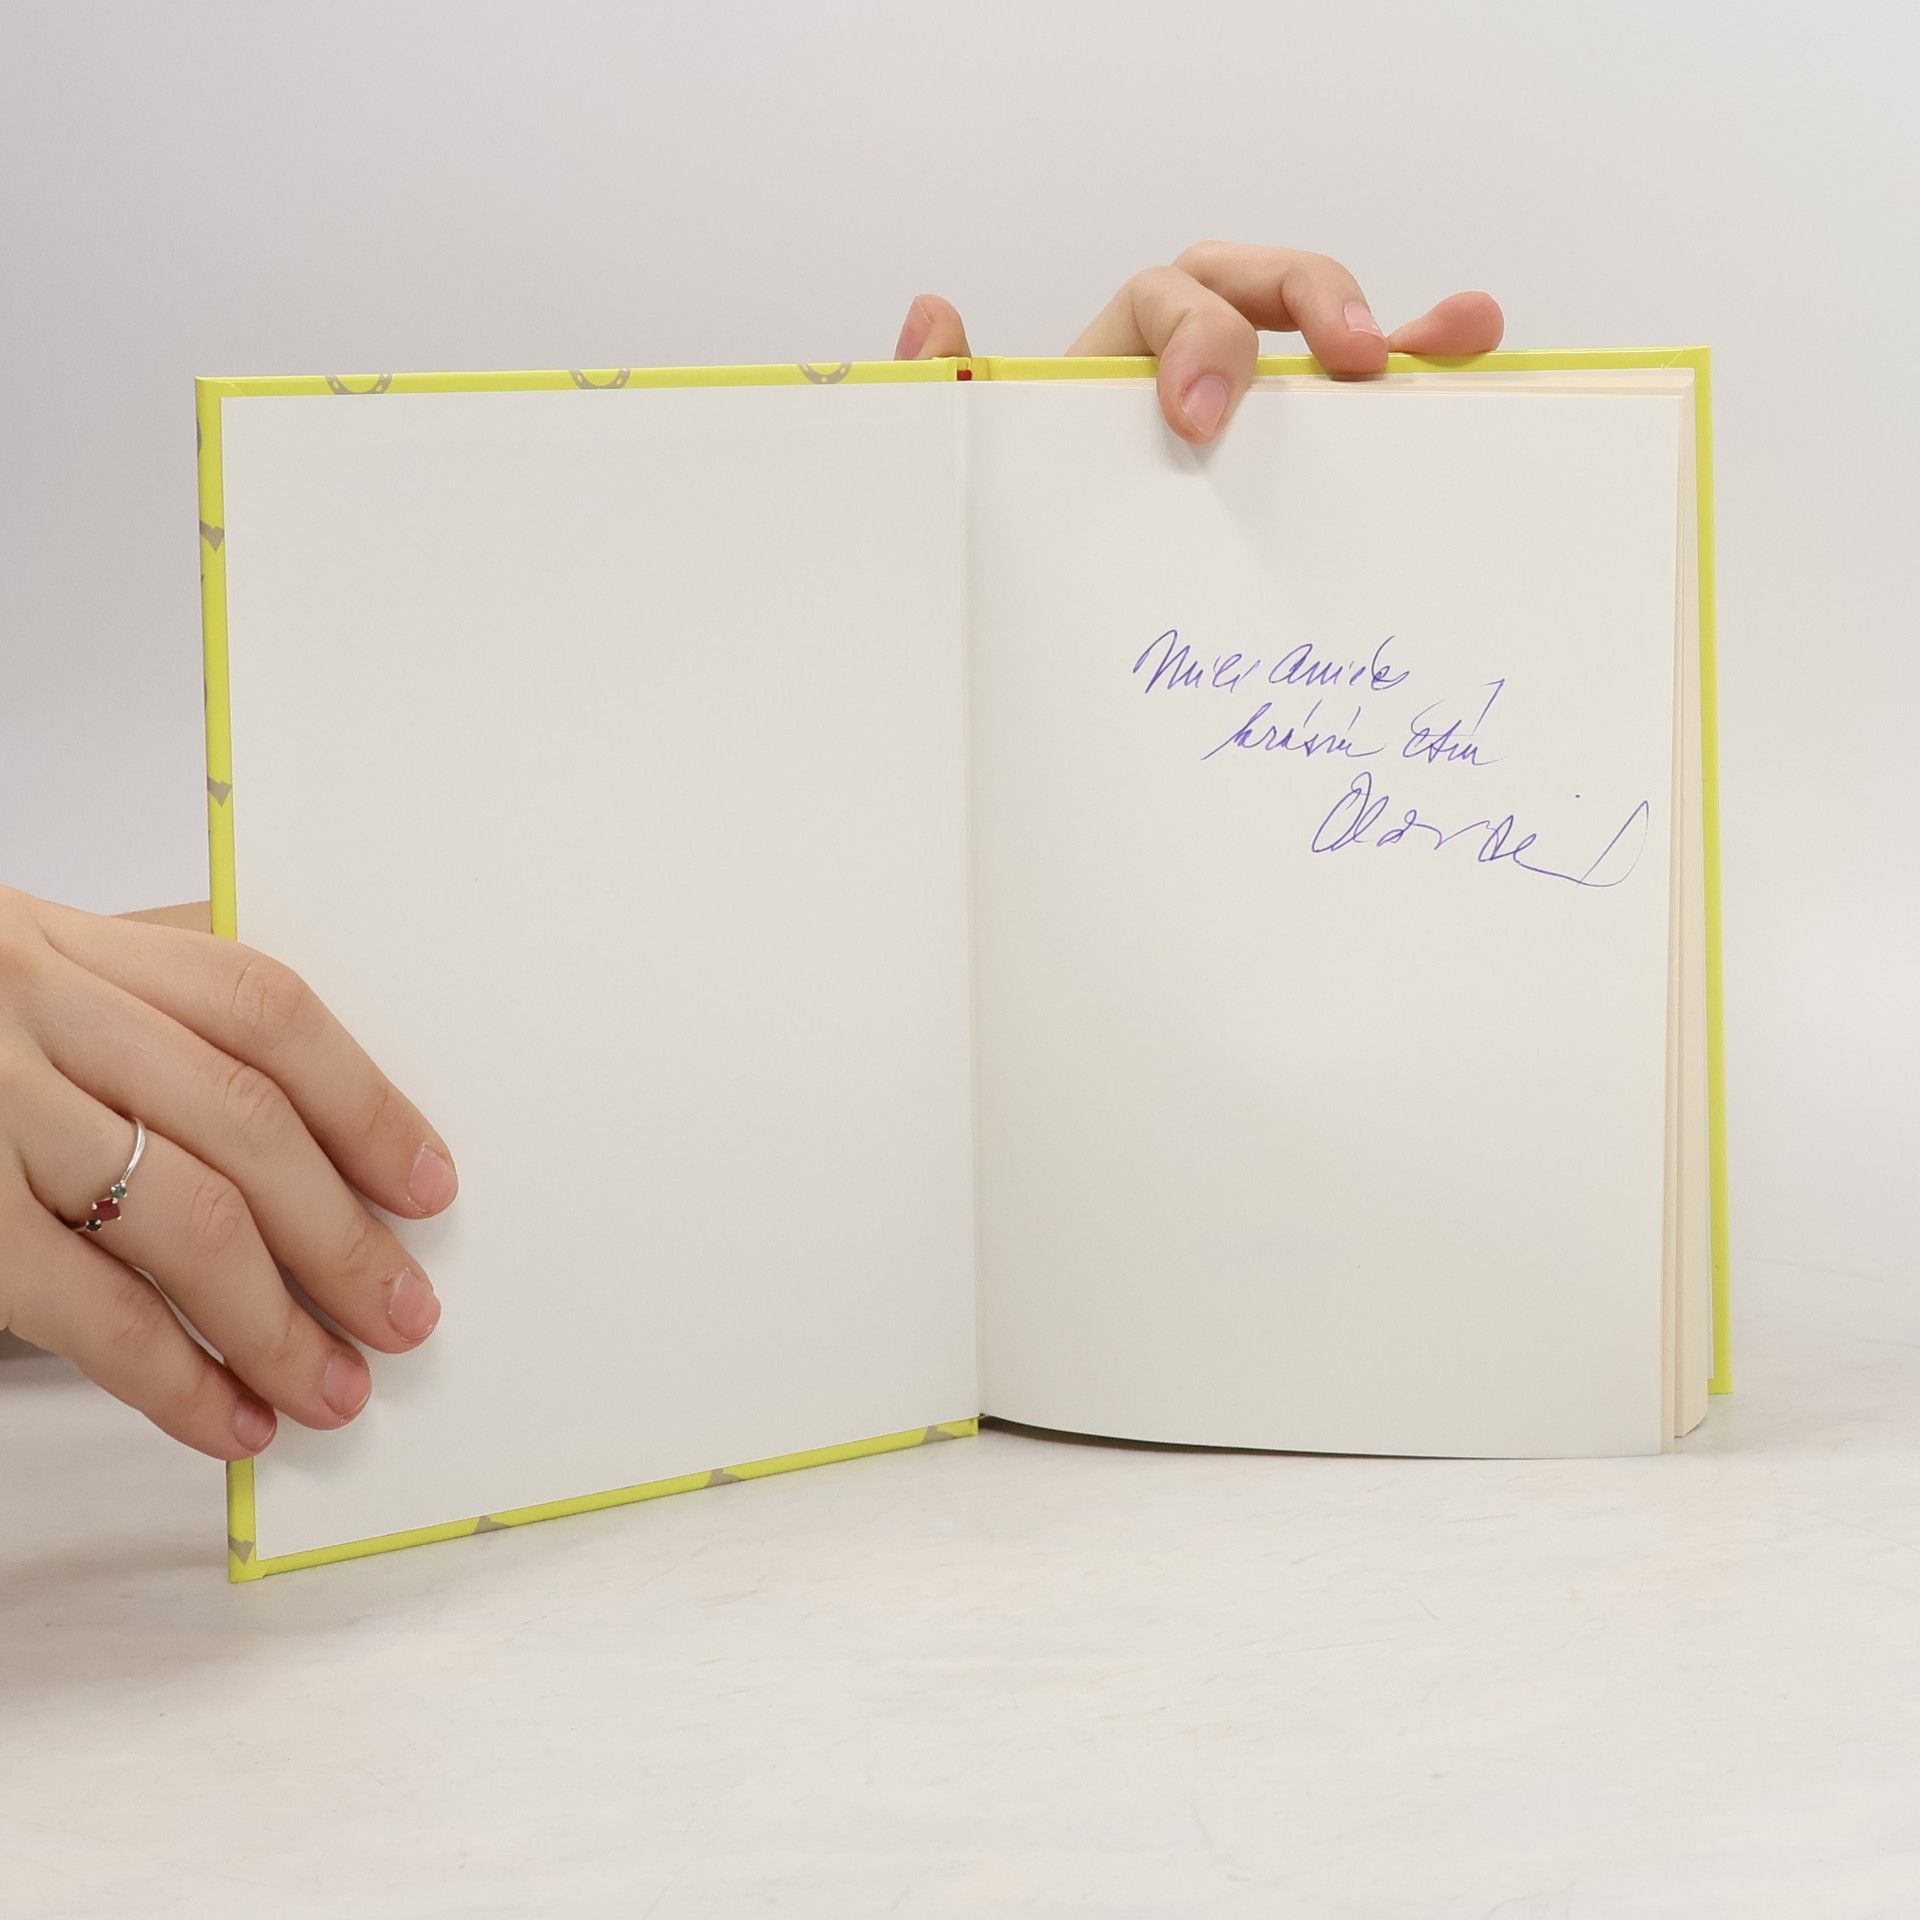 Milé Aničce
krásné čtení